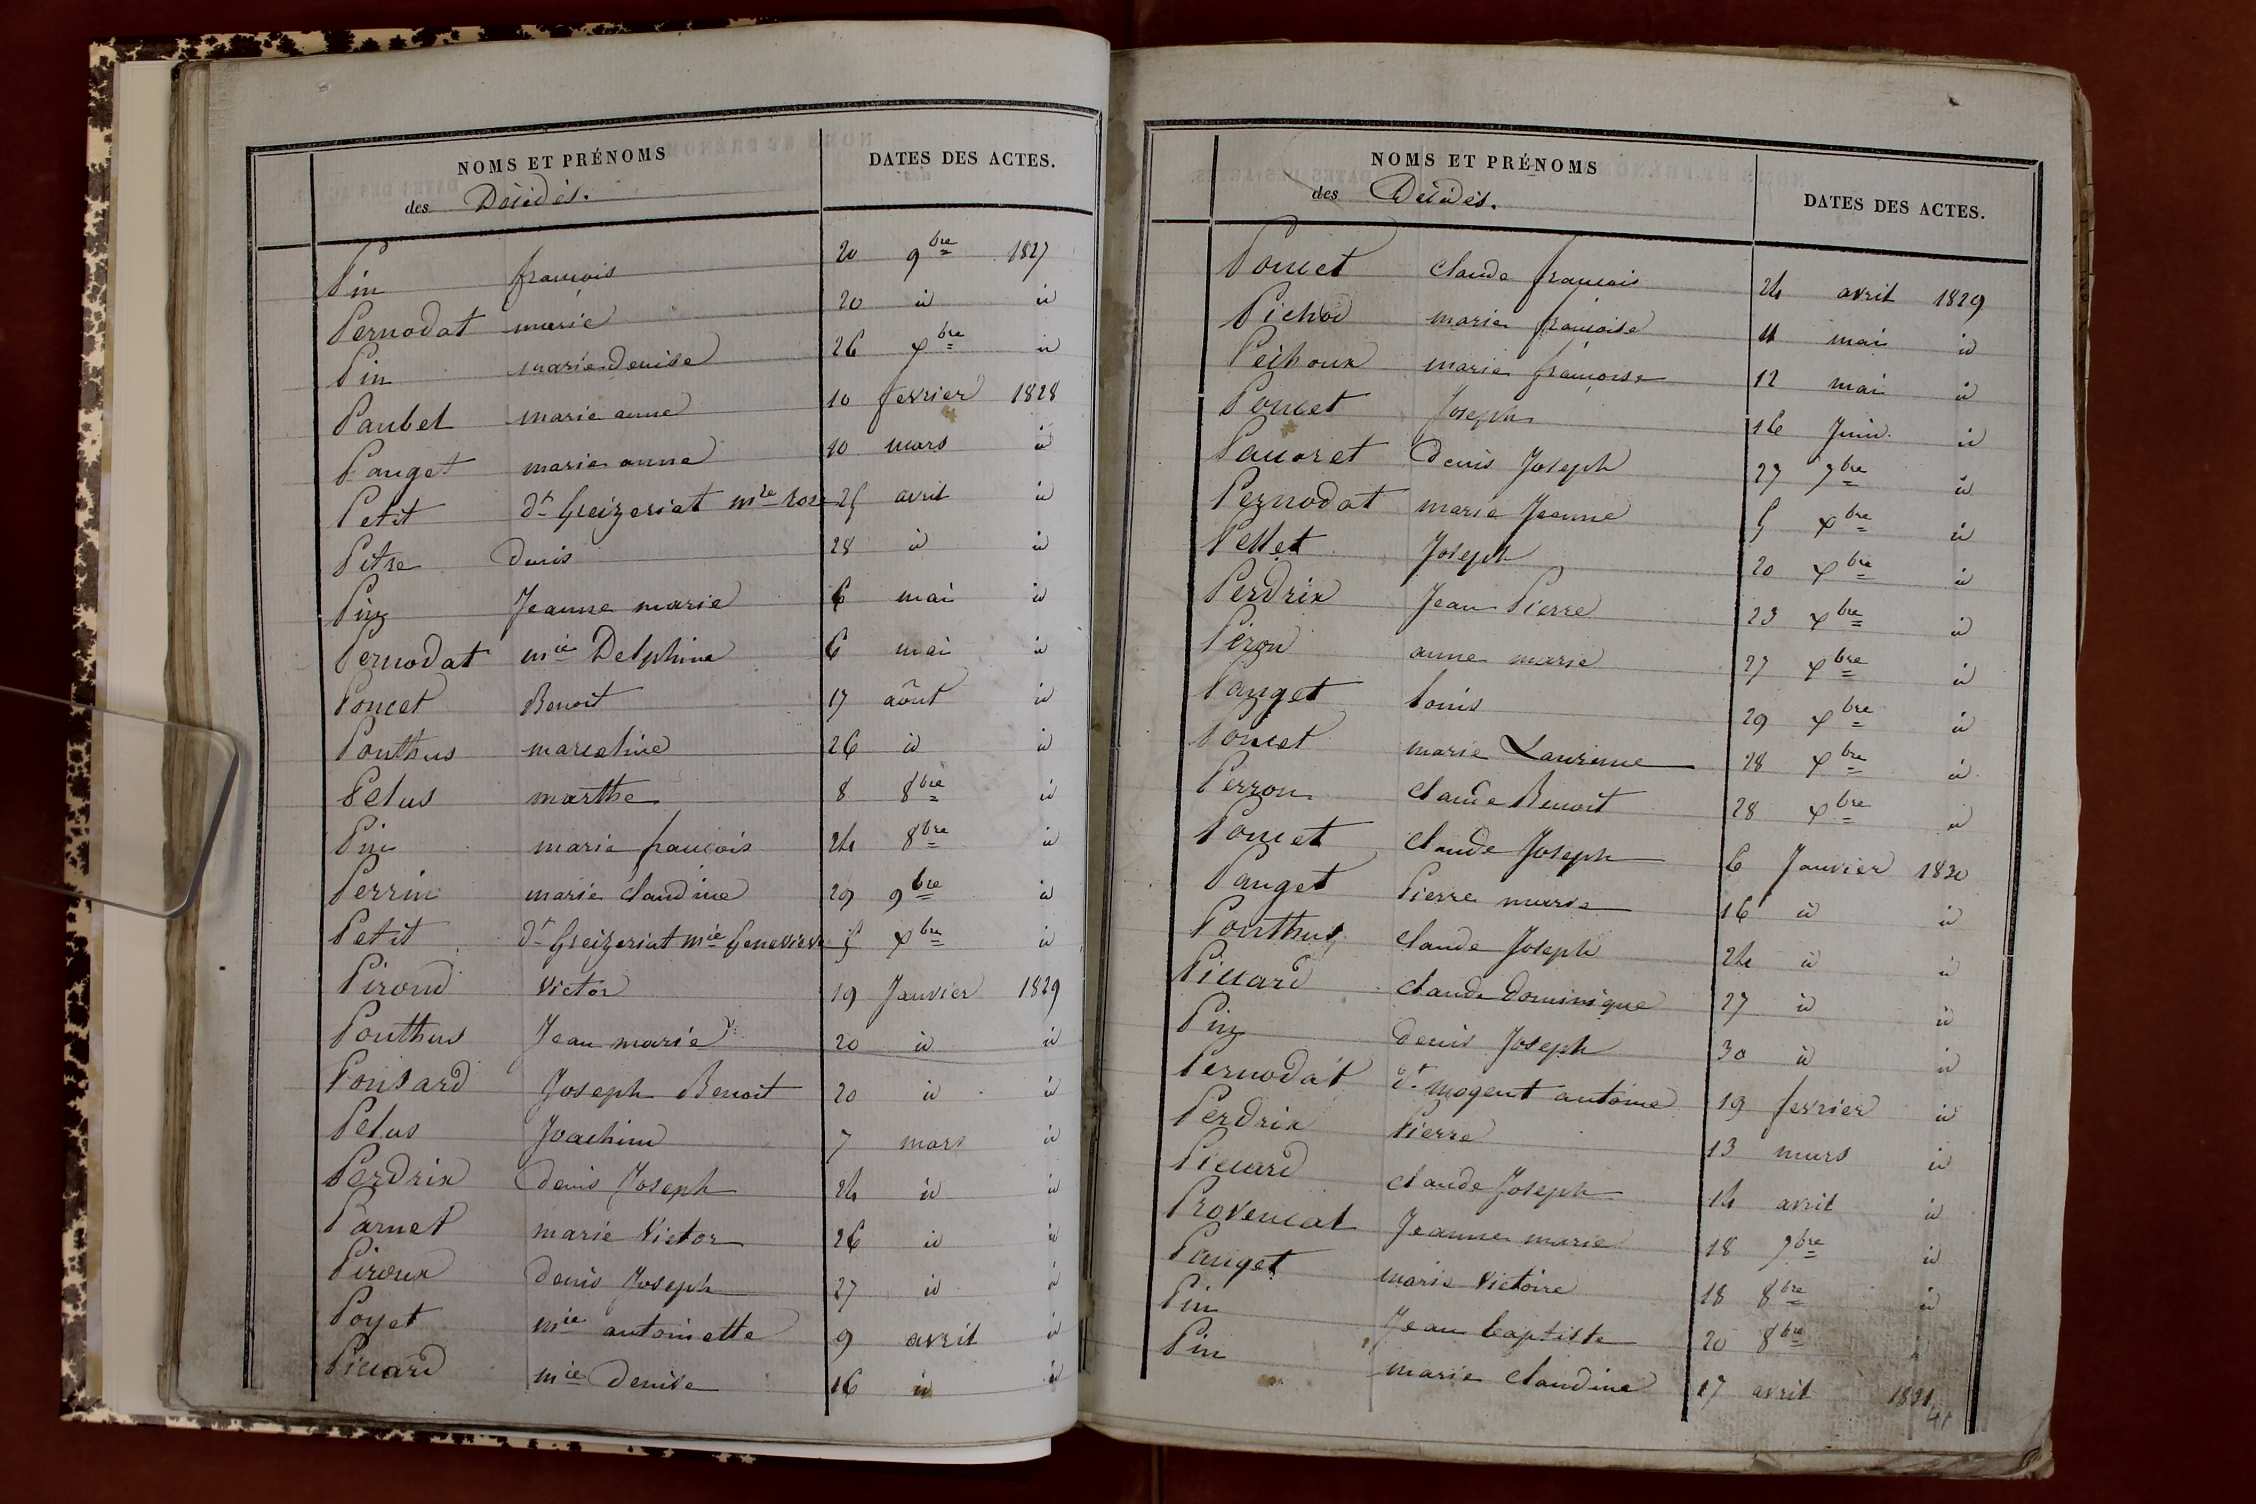 NOMS ET PRÉNOMS DATES DES ACTES.
des Décédés.
Pin françois 20 9bre 1827
Pernodat marie 20 id id
Pin marie Denise 26 xbre id
Paubel marie anne 10 fevrier 1828
Pauget marie anne 10 mars id
Petit dt Greizeriat mie rose 25 avril id
Pitre Denis 28 id id
Pin Jeanne marie 6 mai id
Pernodat mie Delphine 6 mai id
Poncet Benoit 17 aôut id
Ponthus marceline 26 id id
Pelus marthe 8 8bre id
Pin marie françois 24 8bre id
Perrin marie Claudine 29 9bre id
Petit dt Greizeriat mie Genevieve 5 xbre id
Piroud Victor 19 Janvier 1829
Ponthus Jean marie 20 id id
Ponsard Joseph Benoit 20 id id
Pelus Joachim 7 mars id
Perdrix Denis Joseph 24 id id
Parnet marie Victor 26 id id
Piroux Denis Joseph 27 id id
Poyet mie antoinette 9 avril id
Picuard mie Denise 16 id id
NOMS ET PRÉNOMS DATES DES ACTES.
des Décédés.
Poncet Claude françois 24 avril 1829
Pichod marie françoise 11 mai id
Péchoux marie françoise 12 mai id
Poncet Joseph 16 Juin id
Pacoret Denis Joseph 27 7bre id
Pernodat marie Jeanne 5 xbre id
Pellet Joseph 20 xbre id
Perdrix Jean Pierre 23 xbre id
Piron anne marie 27 xbre id
Pauget Louis 29 xbre id
Poncet marie Laurence 28 xbre id
Perron Claude Benoit 28 xbre id
Poncet Claude Joseph 6 Janvier 1830
Pauget Pierre marie 16 id id
Ponthus Claude Joseph 24 id id
Picuard Claude Dominique 27 id id
Pin Denis Joseph 30 id id
Pernodat dt mogent antoine 19 fevrier id
Perdrix Pierre 13 mars id
Picuard Claude Joseph 14 avril id
Provencal Jeanne marie 18 7bre id
Pauget marie Victoire 18 8bre id
Pin Jean baptiste 20 8bre
Pin marie Claudine 17 avril 1831
41